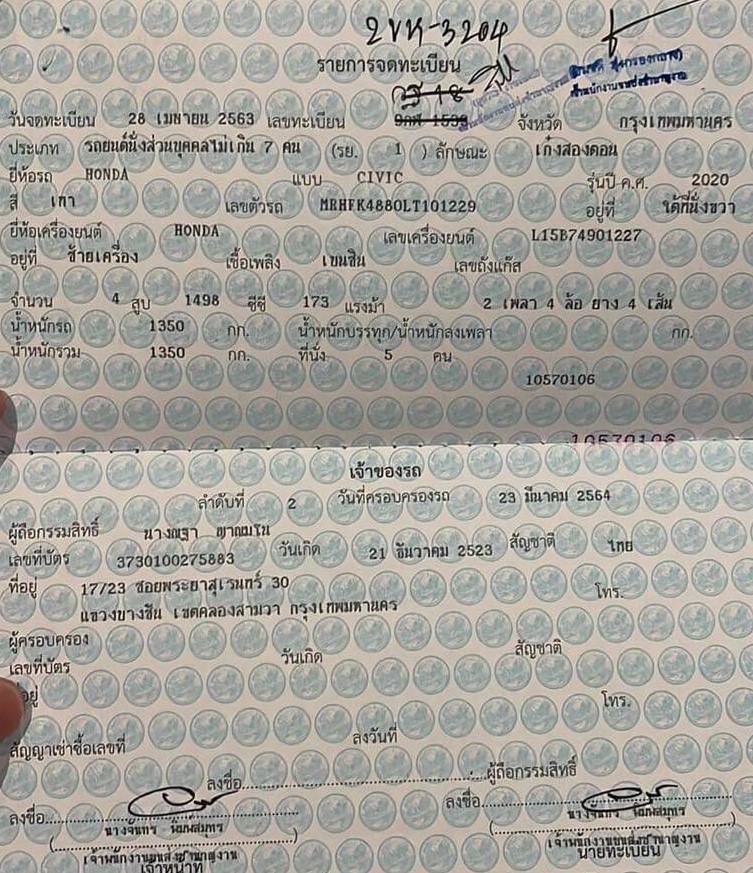 2ขห-3204
รายการจดทะเบียน
วันจดทะเบียน 28 เมษายน 2563 เลขทะเบียน จังหวัด กรุงเทพมหานคร
ประเภท รถยนต์นั่งส่วนบุคคลไม่เกิน 7 คน (รย. 1 ) ลักษณะ เก๋งสองตอน
ยี่ห้อรถ HONDA แบบ CIVIC รุ่นปี ค.ศ. 2020
สี เทา เลขตัวรถ MRHFK4880LT101229 อยู่ที่ ใต้ที่นั่งขวา
ยี่ห้อเครื่องยนต์ HONDA เลขเครื่องยนต์ L15B74901227
อยู่ที่ ซ้ายเครื่อง เชื้อเพลิง เบนซิน เลขถังแก๊ส
จำนวน 4 สูบ 1498 ซีซี 173 แรงม้า 2 เพลา 4 ล้อ ยาง 4 เส้น
น้ำหนักรถ 1350 กก. น้ำหนักบรรทุก/น้ำหนักลงเพลา กก.
น้ำหนักรวม 1350 กก. ที่นั่ง 5 คน
10570106
10570106
เจ้าของรถ
ลำดับที่ 2 วันที่ครอบครองรถ 23 มีนาคม 2564
ผู้ถือกรรมสิทธิ์
เลขที่บัตร 3730100275883 วันเกิด 21 ธันวาคม 2523 สัญชาติ ไทย
ที่อยู่ 17/23 ซอยพระยาสุเรนทร์ 30 โทร.
แขวงบางชัน เขตคลองสามวา กรุงเทพมหานคร
ผู้ครอบครอง
เลขที่บัตร วันเกิด สัญชาติ
ที่อยู่ โทร.
สัญญาเช่าซื้อเลขที่ ลงวันที่
ลงชื่อ ผู้ถือกรรมสิทธิ์
ลงชื่อ ลงชื่อ
นางจันทร พิมพ์สมุทร นางจันทร พิมพ์สมุทร
เจ้าพนักงานขนส่งชำนาญงาน เจ้าพนักงานขนส่งชำนาญงาน
เจ้าหน้าที่ นายทะเบียน